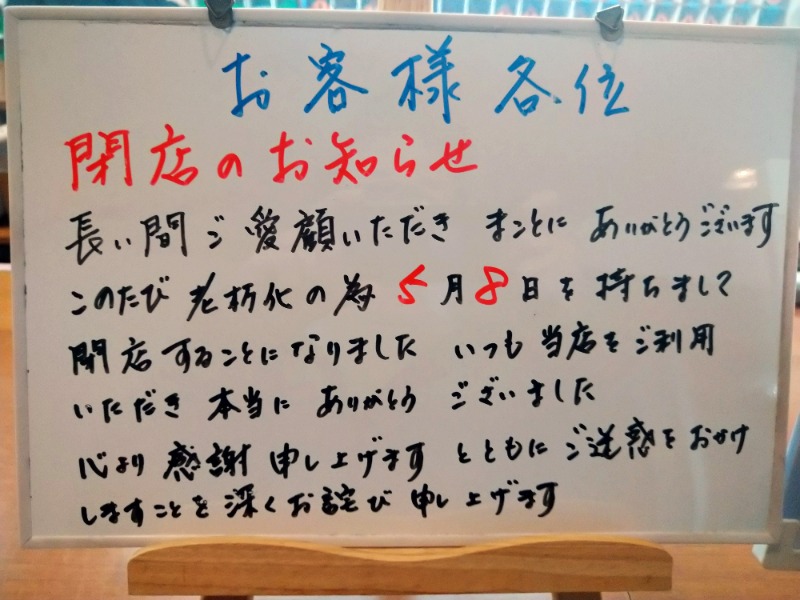 お客様各位
閉店のお知らせ
長い間ご愛顧いただき まことに ありがとうございます
このたび 老朽化の為 5月8日を持ちまして
閉店することになりました いつも当店をご利用
いただき 本当に ありがとう ございました
心より 感謝 申し上げます とともに ご迷惑をおかけ
しますことを深くお詫び 申し上げます